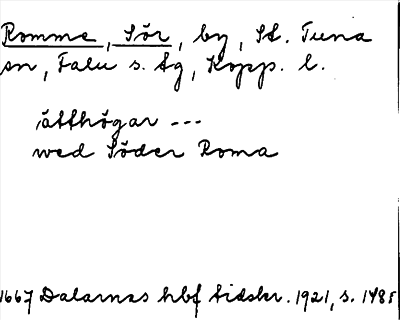 Romme, Sör, by, St. Tuna
sn, Falu s. tg, Kopp. l.
ätthögar ---
wed Söder Roma
1667 Dalarnas hbf tidskr. 1921, s. 148